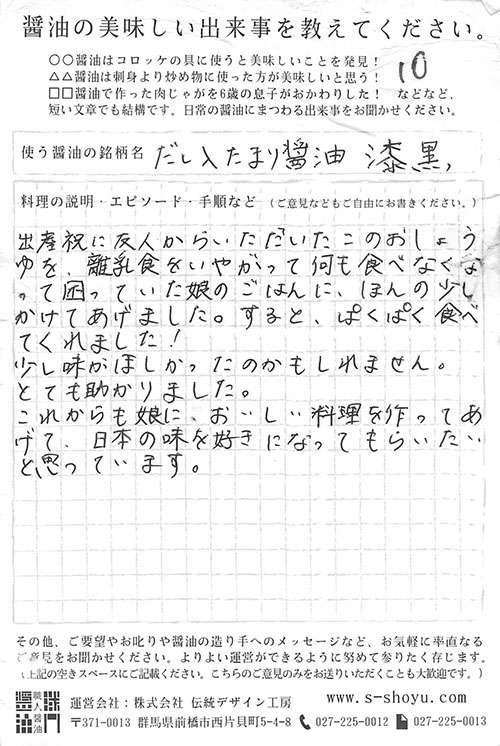 醤油の美味しい出来事を教えてください。
○○醤油はコロッケの具に使うと美味しいことを発見!
△△醤油は刺身より炒め物に使った方が美味しいと思う!
□□醤油で作った肉じゃがを6歳の息子がおかわりした! などなど、
短い文章でも結構です。日常の醤油にまつわる出来事をお聞かせください。
10
使う醤油の銘柄名 だし入たまり醤油 漆黒,
料理の説明・エピソード・手順など (ご意見などもご自由にお書きください。)
出産祝に友人からいただいたこのおしょう
ゆを、離乳食をいやがって何も食べなくな
って困っていた娘のごはんに、ほんの少し
かけてあげました。すると、ぱくぱく食べ
てくれました!
少し味がほしかったのかもしれません。
とても助かりました。
これからも娘に、おいしい料理を作ってあ
げて、日本の味を好きになってもらいたい
と思っています。
その他、ご要望やお叱りや醤油の造り手へのメッセージなど、お気軽に率直なる
ご意見をお聞かせください。よりよい運営ができるように努めて参りたく存じます。
(上記の空きスペースにご記載ください。こちらのご意見のみをお送りいただくことも大歓迎です。)
職人醤油
運営会社:株式会社 伝統デザイン工房 www.s-shoyu.com
〒371-0013 群馬県前橋市西片貝町5-4-8 027-225-0012 027-225-0013